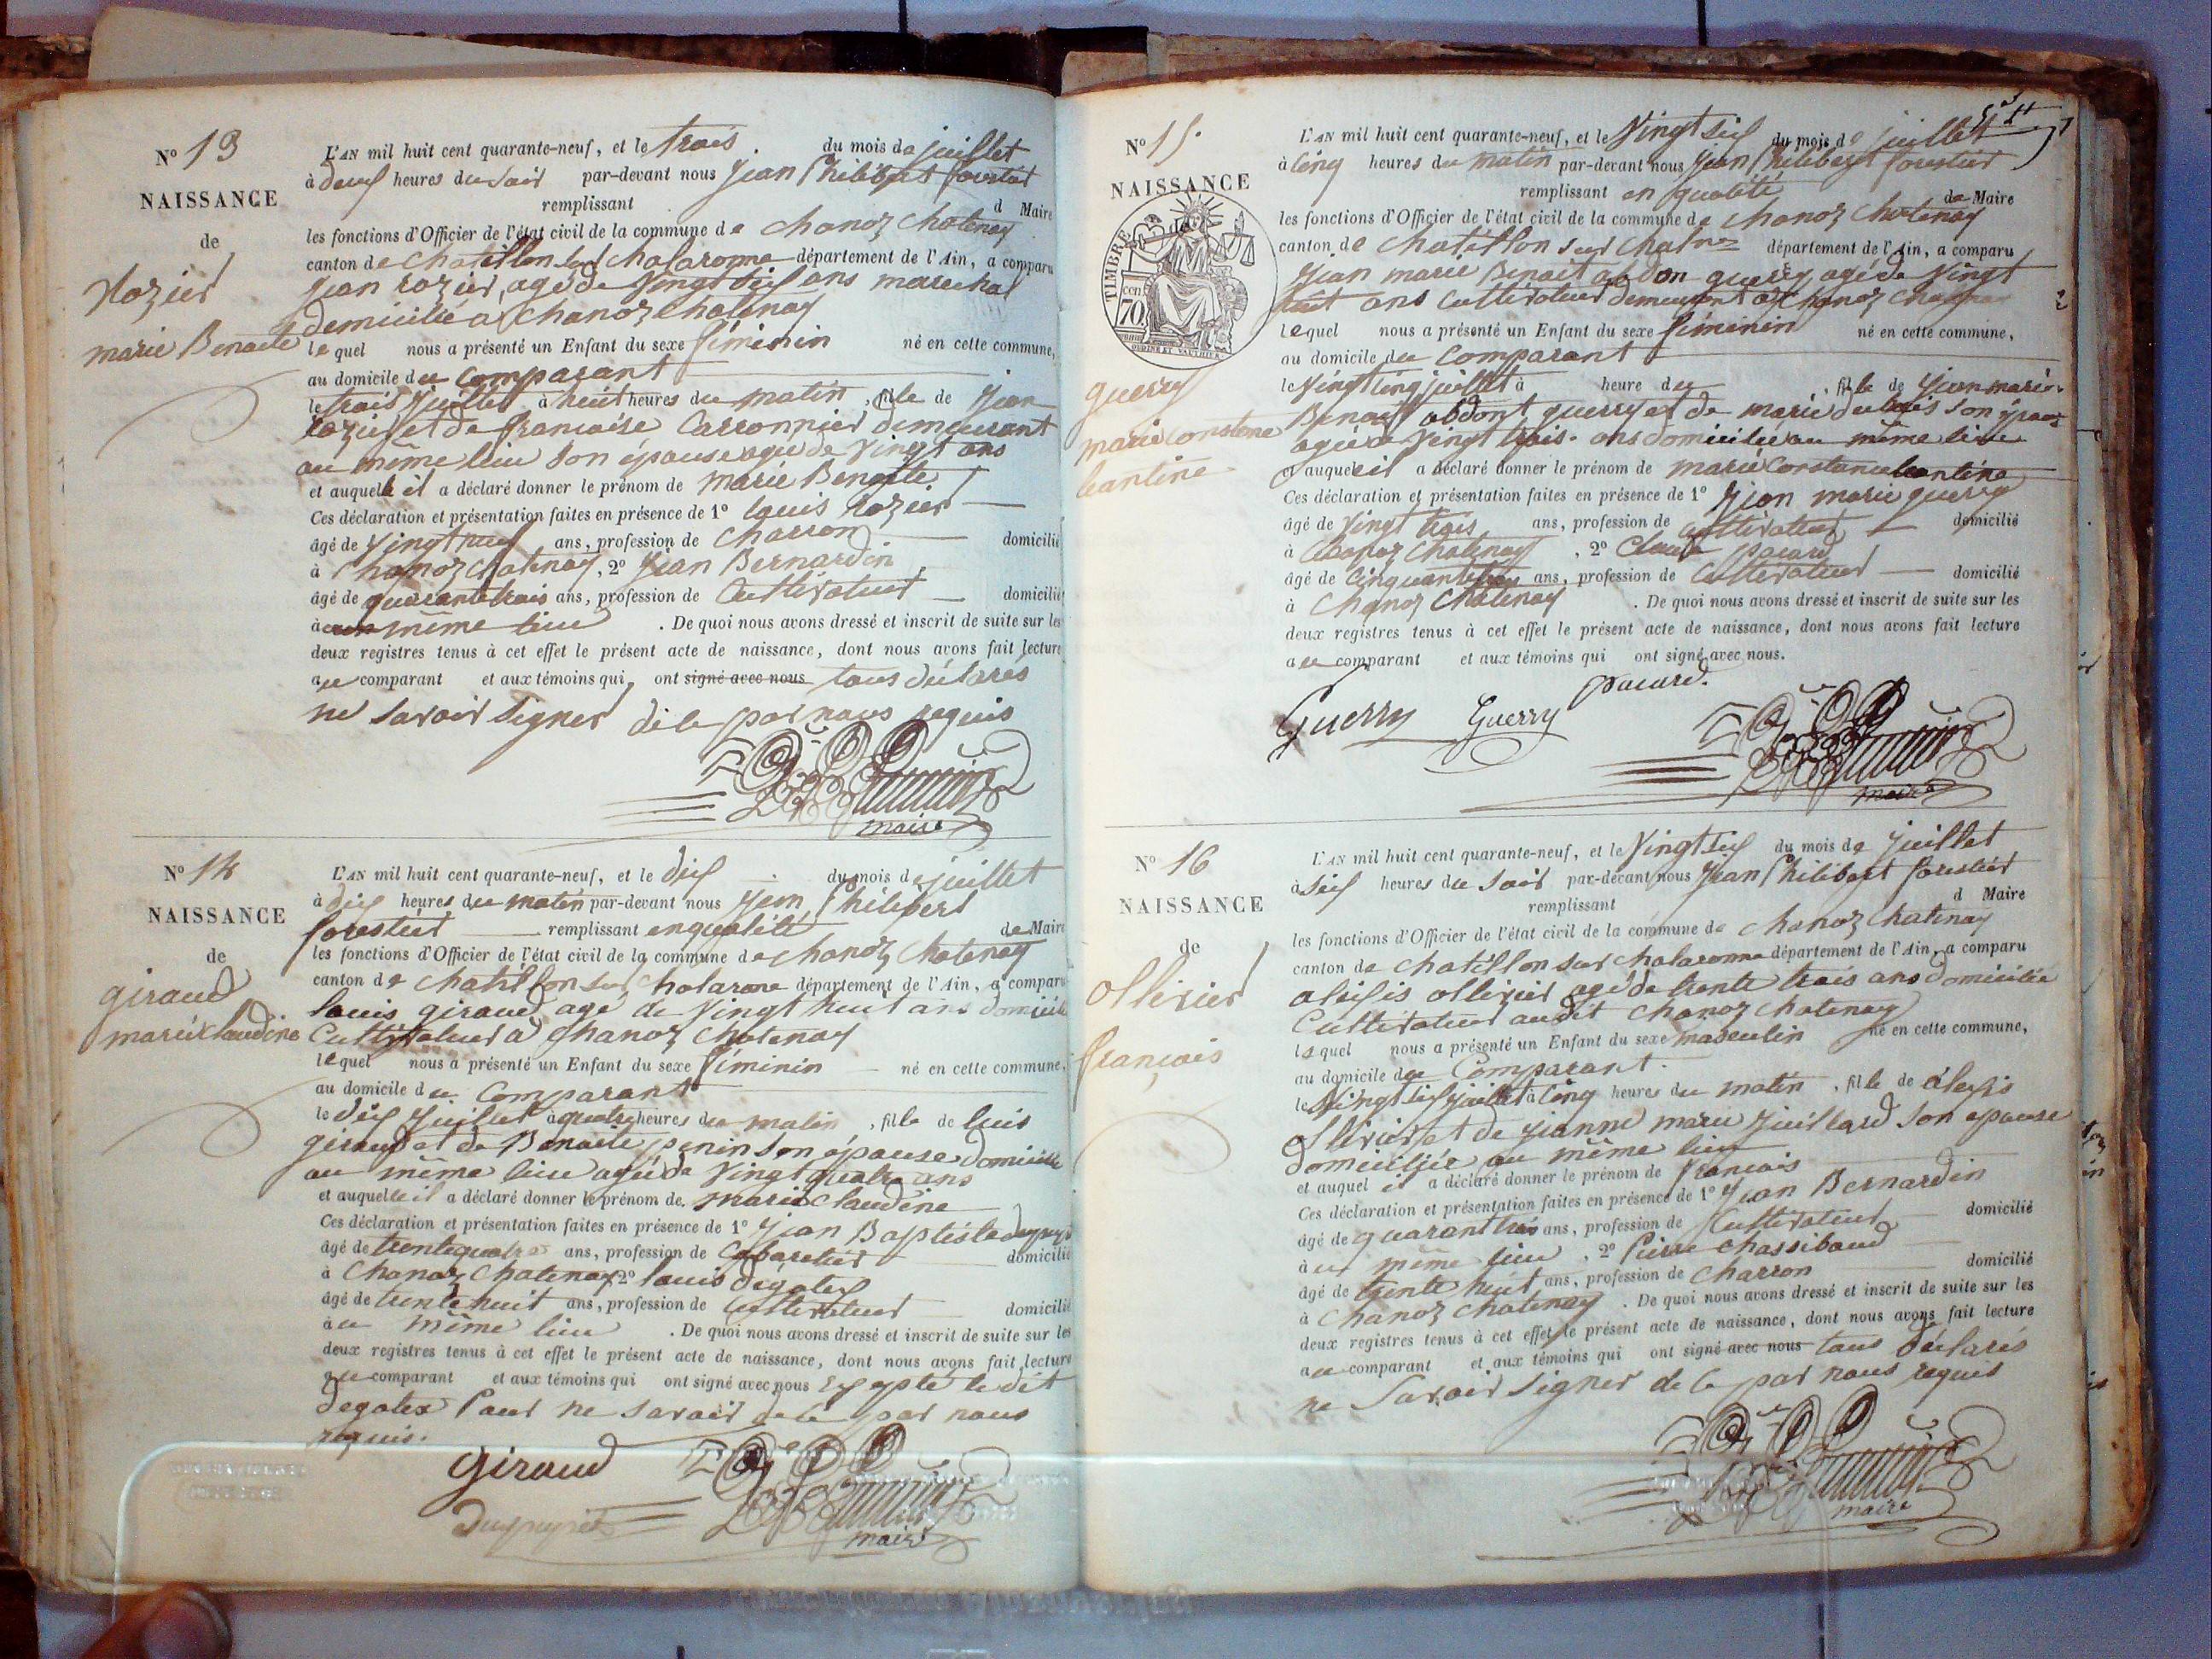 N° 13
NAISSANCE
de
Rozier
marie Benoite
L'AN mil huit cent quarante-neuf, et le trois du mois de juillet
à deux heures du soir par-devant nous jean Philibert forestier
remplissant d Maire
les fonctions d'Officier de l'état civil de la commune de chanoz chatenay
canton de chatillon sur chalaronne département de l'Ain, a comparu
jean rozier, agé de vingt six ans marechal
demicilié a chanoz chatenay
lequel nous a présenté un Enfant du sexe féminin né en cette commune,
au domicile du Comparant
le trois juillet à huit heures du matin, fille de jean
rozier et de francoise Carronnier demeurant
au même lieu son épouse agée de vingt ans
et auquelle il a déclaré donner le prénom de marie Benoite
Ces déclaration et présentation faites en présence de 1° louis rozier
âgé de vingt neuf ans, profession de charron domicilié
à chanoz chatenay, 2° jean Bernardin
âgé de quarante trois ans, profession de Cultivateur domicilié
à même lieu. De quoi nous avons dressé et inscrit de suite sur les
deux registres tenus à cet effet le présent acte de naissance, dont nous avons fait lecture
au comparant et aux témoins qui ont signé avec nous tous déclarés
ne savoir signer de ce par nous requis
maire
N° 14
NAISSANCE
de
giraud
marie claudine
L'AN mil huit cent quarante-neuf, et le dix du mois de juillet
à dix heures du matin par-devant nous jean Philibert
forestier remplissant en qualité de Maire
les fonctions d'Officier de l'état civil de la commune de chanoz chatenay
canton de chatillon sur chalarone département de l'Ain, a comparu
louis giraud agé de vingt huit ans domicilié
Cultivateur a chanoz chatenay
lequel nous a présenté un Enfant du sexe féminin né en cette commune,
au domicile du Comparant
le dix juillet à quatre heures du matin, fille de luis
giraud et de Benoite penin son épouse domiciliée
au même lieu agée de vingt quatre ans
et auquelle il a déclaré donner le prénom de marie claudine
Ces déclaration et présentation faites en présence de 1° jean Baptiste
âgé de trente quatre ans, profession de Cabaretier domicilié
à chanoz chatenay 2° louis degatex
âgé de trente huit ans, profession de Cultivateur domicilié
au même lieu. De quoi nous avons dressé et inscrit de suite sur les
deux registres tenus à cet effet le présent acte de naissance, dont nous avons fait lecture
au comparant et aux témoins qui ont signé avec nous Excepté le dit
degatex Pour ne savoir de ce par nous
requis.
giraud
maire
N° 15
NAISSANCE
de
TIMBRE
cen.
70.
guerry
marie constance
leantine
L'AN mil huit cent quarante-neuf, et le vingt six du mois de juillet
à cinq heures du matin par-devant nous jean Philibert forestier
remplissant en qualité de Maire
les fonctions d'Officier de l'état civil de la commune de chanoz chatenay
canton de chatillon sur département de l'Ain, a comparu
jean marie Benoit abdon guerry, agé de vingt
huit ans Cultivateur demeurant a chanoz
lequel nous a présenté un Enfant du sexe féminin né en cette commune,
au domicile du Comparant
le vingt cinq juillet à heure du, fille de jean marie
Benoit abdont guerry et de marie son épouse
agée de vingt trois ans domiciliée au même lieu
et auquel il a déclaré donner le prénom de marie Constance leantine
Ces déclaration et présentation faites en présence de 1° jean marie guerry
âgé de vingt trois ans, profession de cultivateur domicilié
à chanoz chatenay, 2° Claude pacard
âgé de cinquante ans, profession de Cultivateur domicilié
à chanoz chatenay. De quoi nous avons dressé et inscrit de suite sur les
deux registres tenus à cet effet le présent acte de naissance, dont nous avons fait lecture
au comparant et aux témoins qui ont signé avec nous.
Guerry Guerry pacard.
maire
N° 16
NAISSANCE
de
ollivier
francois
L'AN mil huit cent quarante-neuf, et le vingt six du mois de juillet
à six heures du soir par-devant nous jean Philibert forestier
remplissant d Maire
les fonctions d'Officier de l'état civil de la commune de chanoz chatenay
canton de chatillon sur chalaronne département de l'Ain, a comparu
alexis ollivier agé de trente trois ans domicilié
Cultivateur audit chanoz chatenay
lequel nous a présenté un Enfant du sexe masculin né en cette commune,
au domicile du Comparant.
le vingt six juillet à cinq heures du matin, fils de alexis
ollivier et de jeanne marie juillard son epouse
domiciliée au même lieu
et auquel il a déclaré donner le prénom de francois
Ces déclaration et présentation faites en présence de 1° jean Bernardin
âgé de quarante trois ans, profession de Cultivateur domicilié
à u même lieu, 2° Pierre chassibaud
âgé de trente huit ans, profession de charron domicilié
à chanoz chatenay. De quoi nous avons dressé et inscrit de suite sur les
deux registres tenus à cet effet le présent acte de naissance, dont nous avons fait lecture
au comparant et aux témoins qui ont signé avec nous tous déclarés
ne savoir signer de ce par nous requis
maire